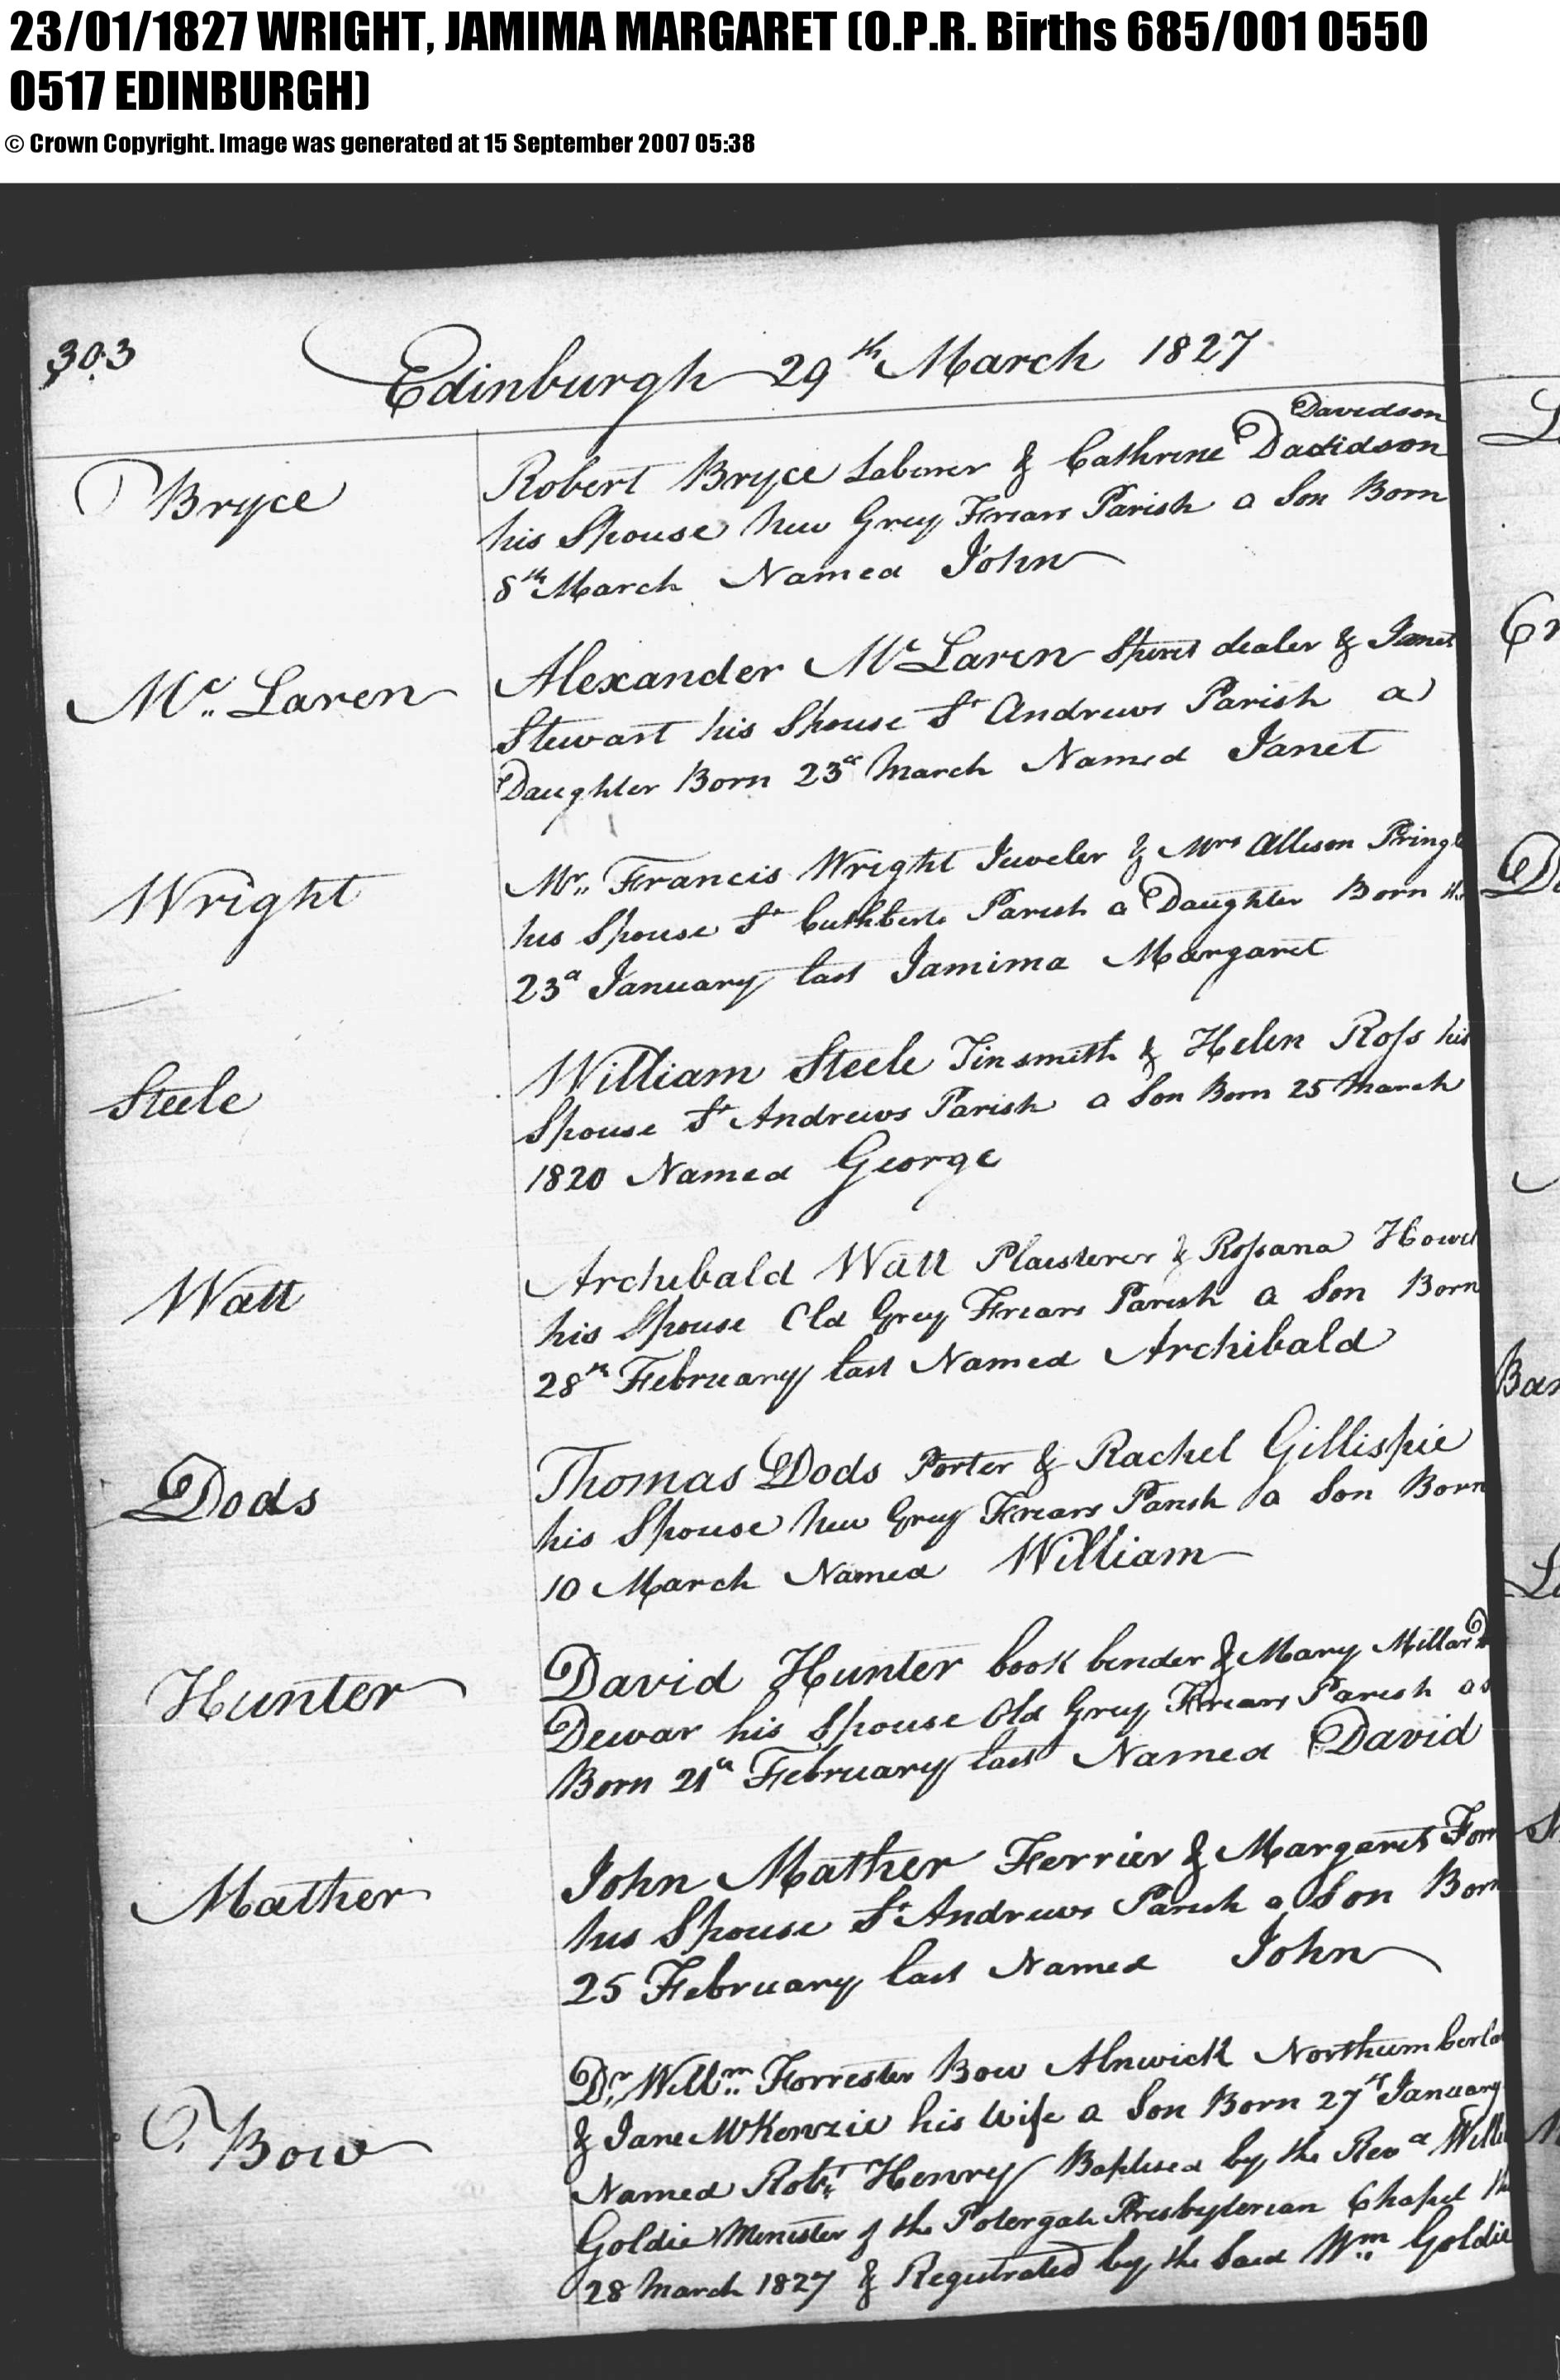 23/01/1827 WRIGHT, JAMIMA MARGARET (O.P.R. Births 685/001 0550
0517 EDINBURGH)
© Crown Copyright. Image was generated at 15 September 2007 05:38
303
Edinburgh 29th March 1827
Davidson
Bryce
Robert Bryce Laborer & Cathrine Davidson
his Spouse New Grey Friars Parish a Son Born
8th March Named John
Mc Laren
Alexander Mc Laren Spirit dealer & Janet
Stewart his Spouse St Andrews Parish a
Daughter Born 23d March Named Janet
Wright
Mr. Francis Wright Jeweler & Mrs Allison Pringl
his Spouse St Cuthberts Parish a Daughter Born
23d January last Jamima Margaret
Steele
William Steele Tinsmith & Helen Ross his
Spouse St Andrews Parish a Son Born 25 March
1820 Named George
Watt
Archibald Watt Plaisterer & Rossana
his Spouse Old Grey Friars Parish a Son Born
28th February last Named Archibald
Dods
Thomas Dods Porter & Rachel Gillispie
his Spouse New Grey Friars Parish a Son Born
10 March Named William
Hunter
David Hunter book binder & Mary Millar
Dewar his Spouse Old Grey Friars Parish a
Born 21st February last Named David
Mather
John Mather Ferrier & Margaret
his Spouse St Andrews Parish a Son Born
25 February last Named John
Bow
Dr. Willm. Forrester Bow Alnwick Northumberla
& Jane McKenzie his Wife a Son Born 27th January
Named Robt. Henry Baptised by the Revd Willi
Goldie Minister of the Potergate Presbyterian Chapel
28 March 1827 & Registrated by the Said Wm Goldie